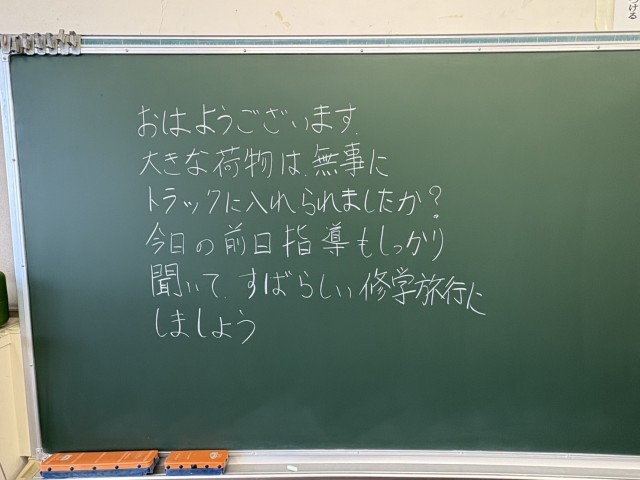 おはようございます.
大きな荷物は、無事に
トラックに入れられましたか?
今日の前日指導もしっかり
聞いて、すばらしい修学旅行に
しましょう
つける